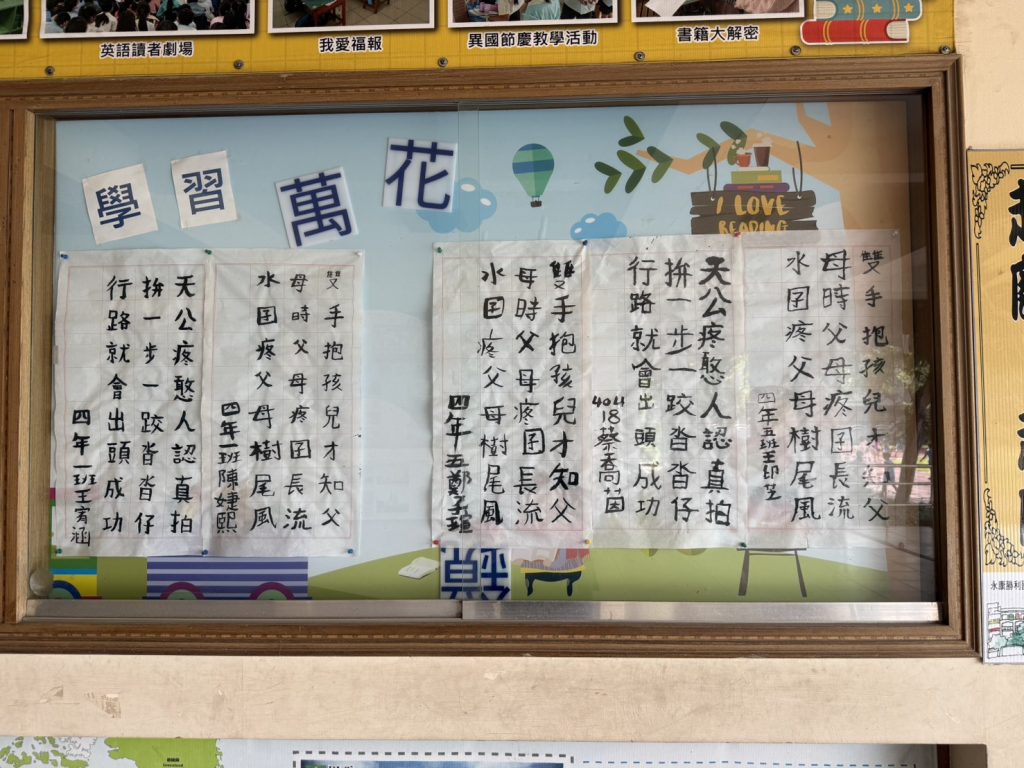 英語讀者劇場
我愛福報
異國節慶教學活動
書籍大解密
學習萬花
I LOVE
READING
雙手抱孩兒才知父
母時父母疼囝長流
水囝疼父母樹尾風
四年五班王
天公疼憨人認真拍
拚一步一跤沓沓仔
行路就會出頭成功
404 18 蔡喬茵
雙手抱孩兒才知父
母時父母疼囝長流
水囝疼父母樹尾風
四年五鄭
雙手抱孩兒才知父
母時父母疼囝長流
水囝疼父母樹尾風
四年一班陳婕熙
天公疼憨人認真拍
拚一步一跤沓沓仔
行路就會出頭成功
四年一班王宥涵
永康勝利